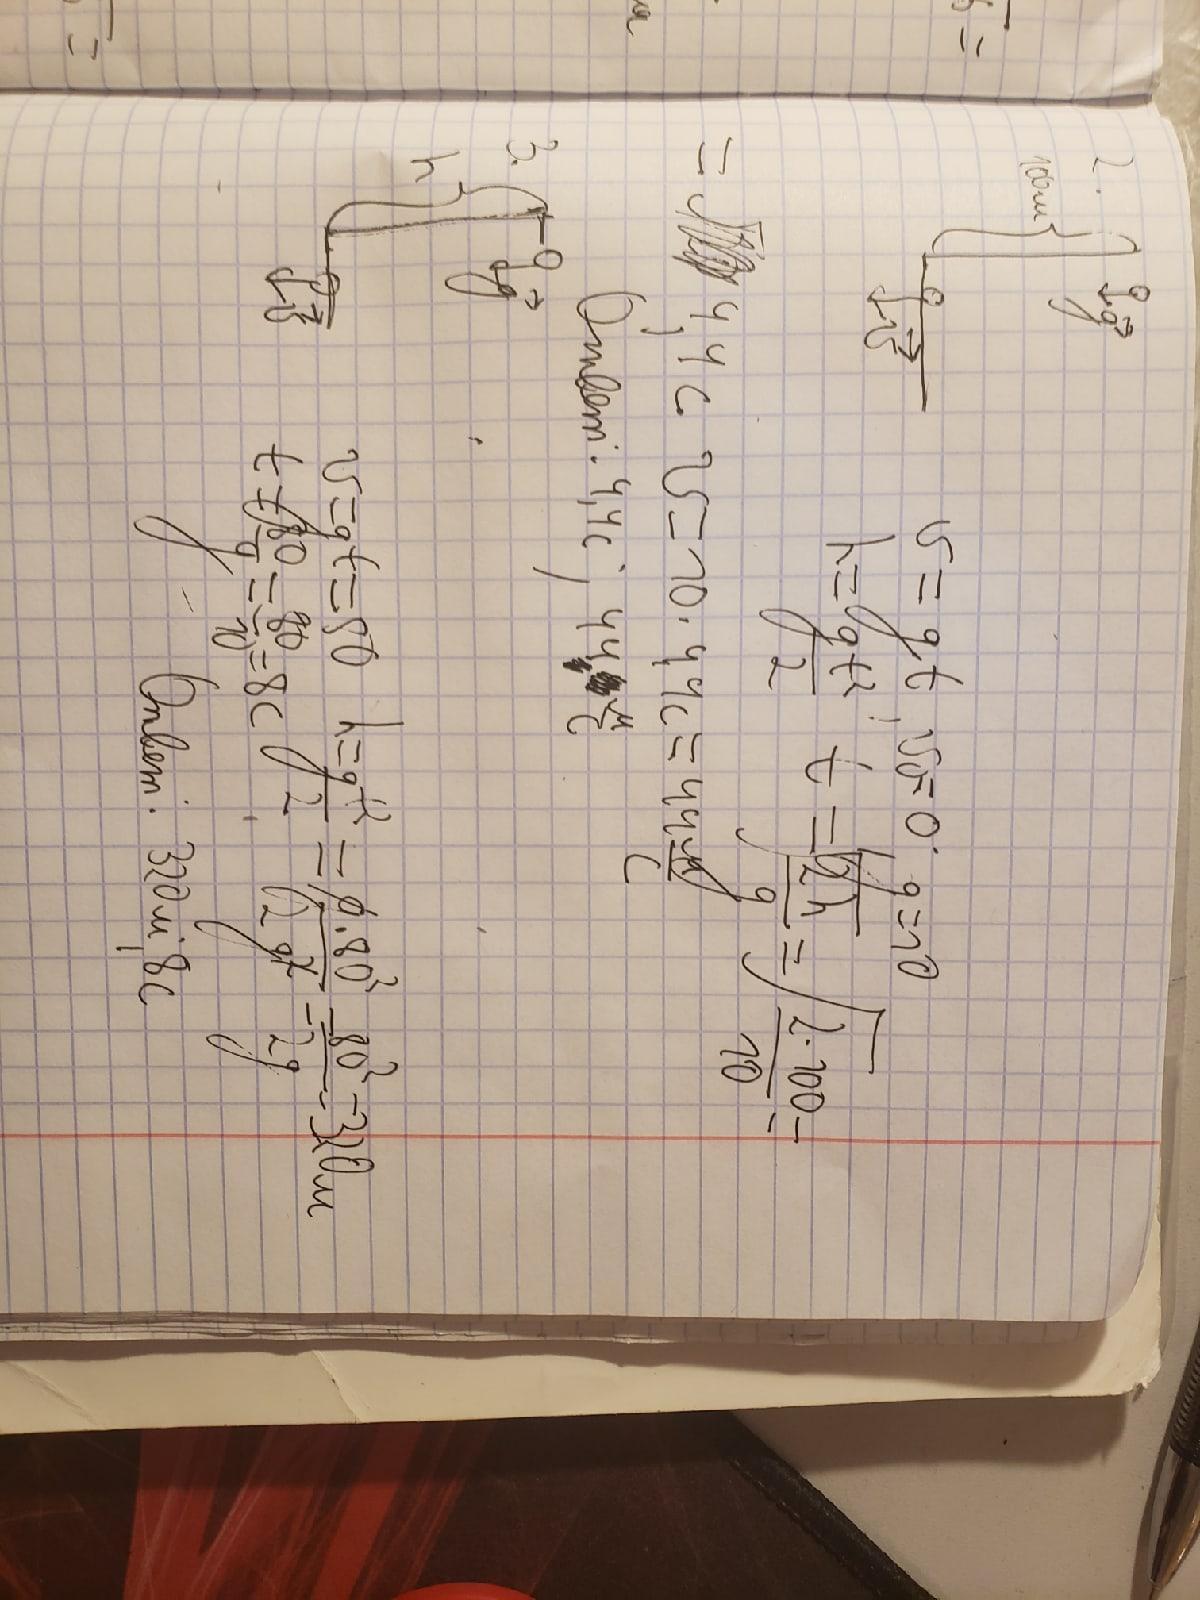 2.
100м
g
v
v = gt, v₀=0. g=10
h = gt²/2 t = √2h/g = √2·100/10 =
= 4,4 с v = 10·4,4с = 44 м/с
Ответ: 4,4с; 44 м/с
3.
h
g
v
v=gt=80 h=gt²/2 = = 80²/2g = 320м
t = 80/g = 80/10 = 8с
Ответ: 320м; 8с